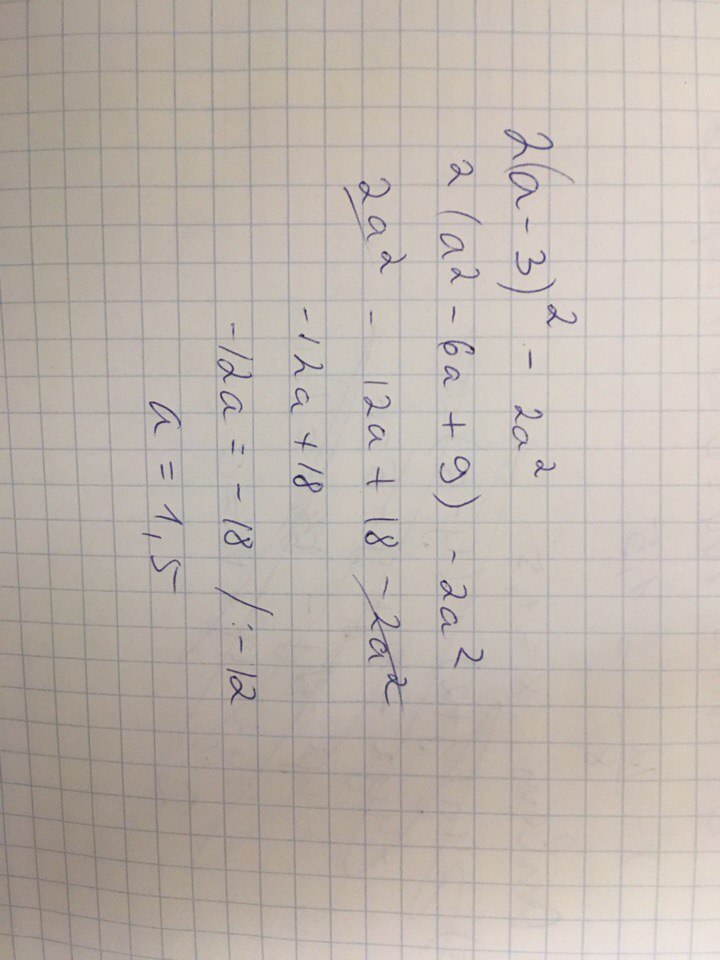 2(a-3)² - 2a²
2(a² - 6a + 9) - 2a²
2a² - 12a + 18 - 2a²
-12a + 18
-12a = -18 /:-12
a = 1,5